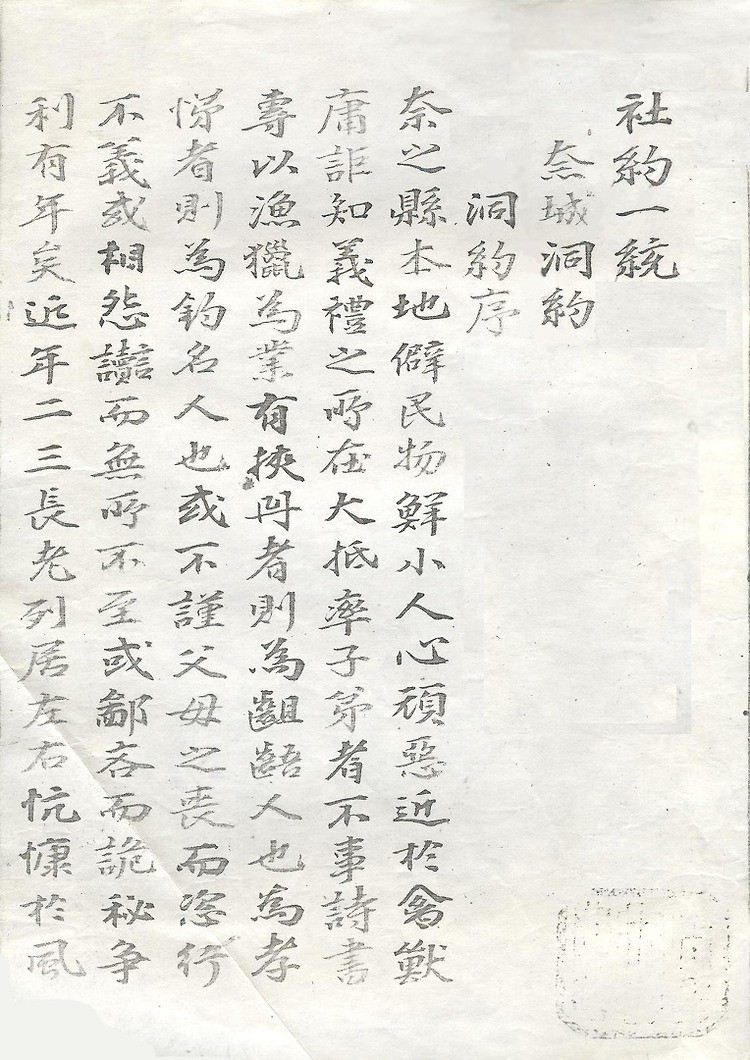 社約一統
奈城洞約
洞約序
奈之縣本地僻民物鮮小人心頑惡近於禽獸
庸詎知義禮之所在大抵率子弟者不事詩書
專以漁獵為業有挾冊者則為齟齬人也為孝
悌者則為釣名人也或不謹父母之喪而恣行
不義或相怨讟而無所不至或鄙吝而詭秘争
利有年矣近年二三長老列居左右忼慷於風